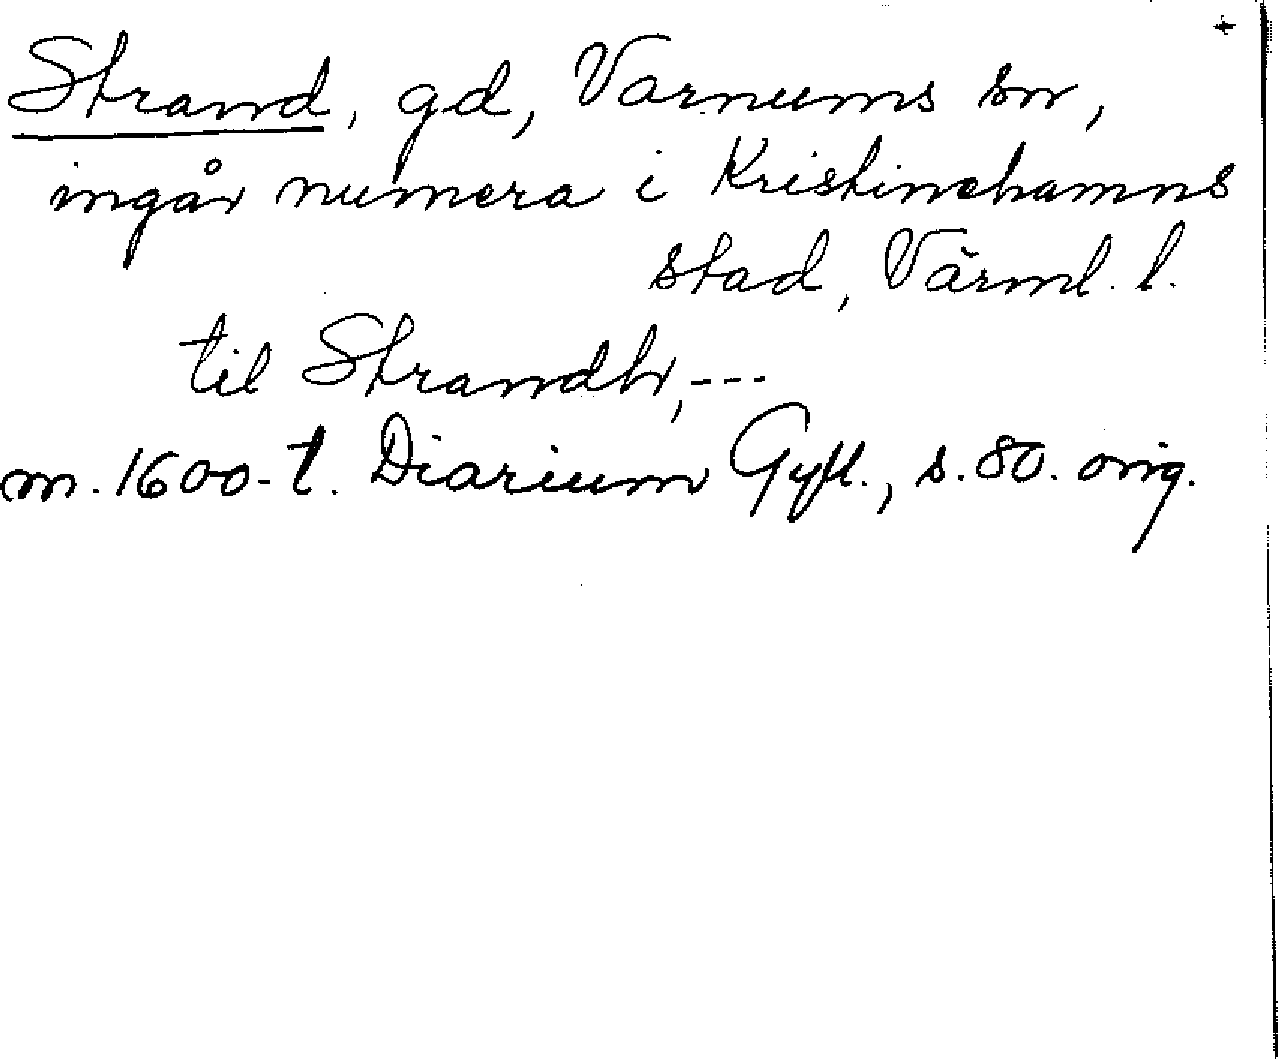 +
Strand, gd, Varnums sn,
ingår numera i Kristinehamns
stad, Värml. l.
til Strandh, ---
m. 1600-t. Diarium Gyll., s. 80. orig.